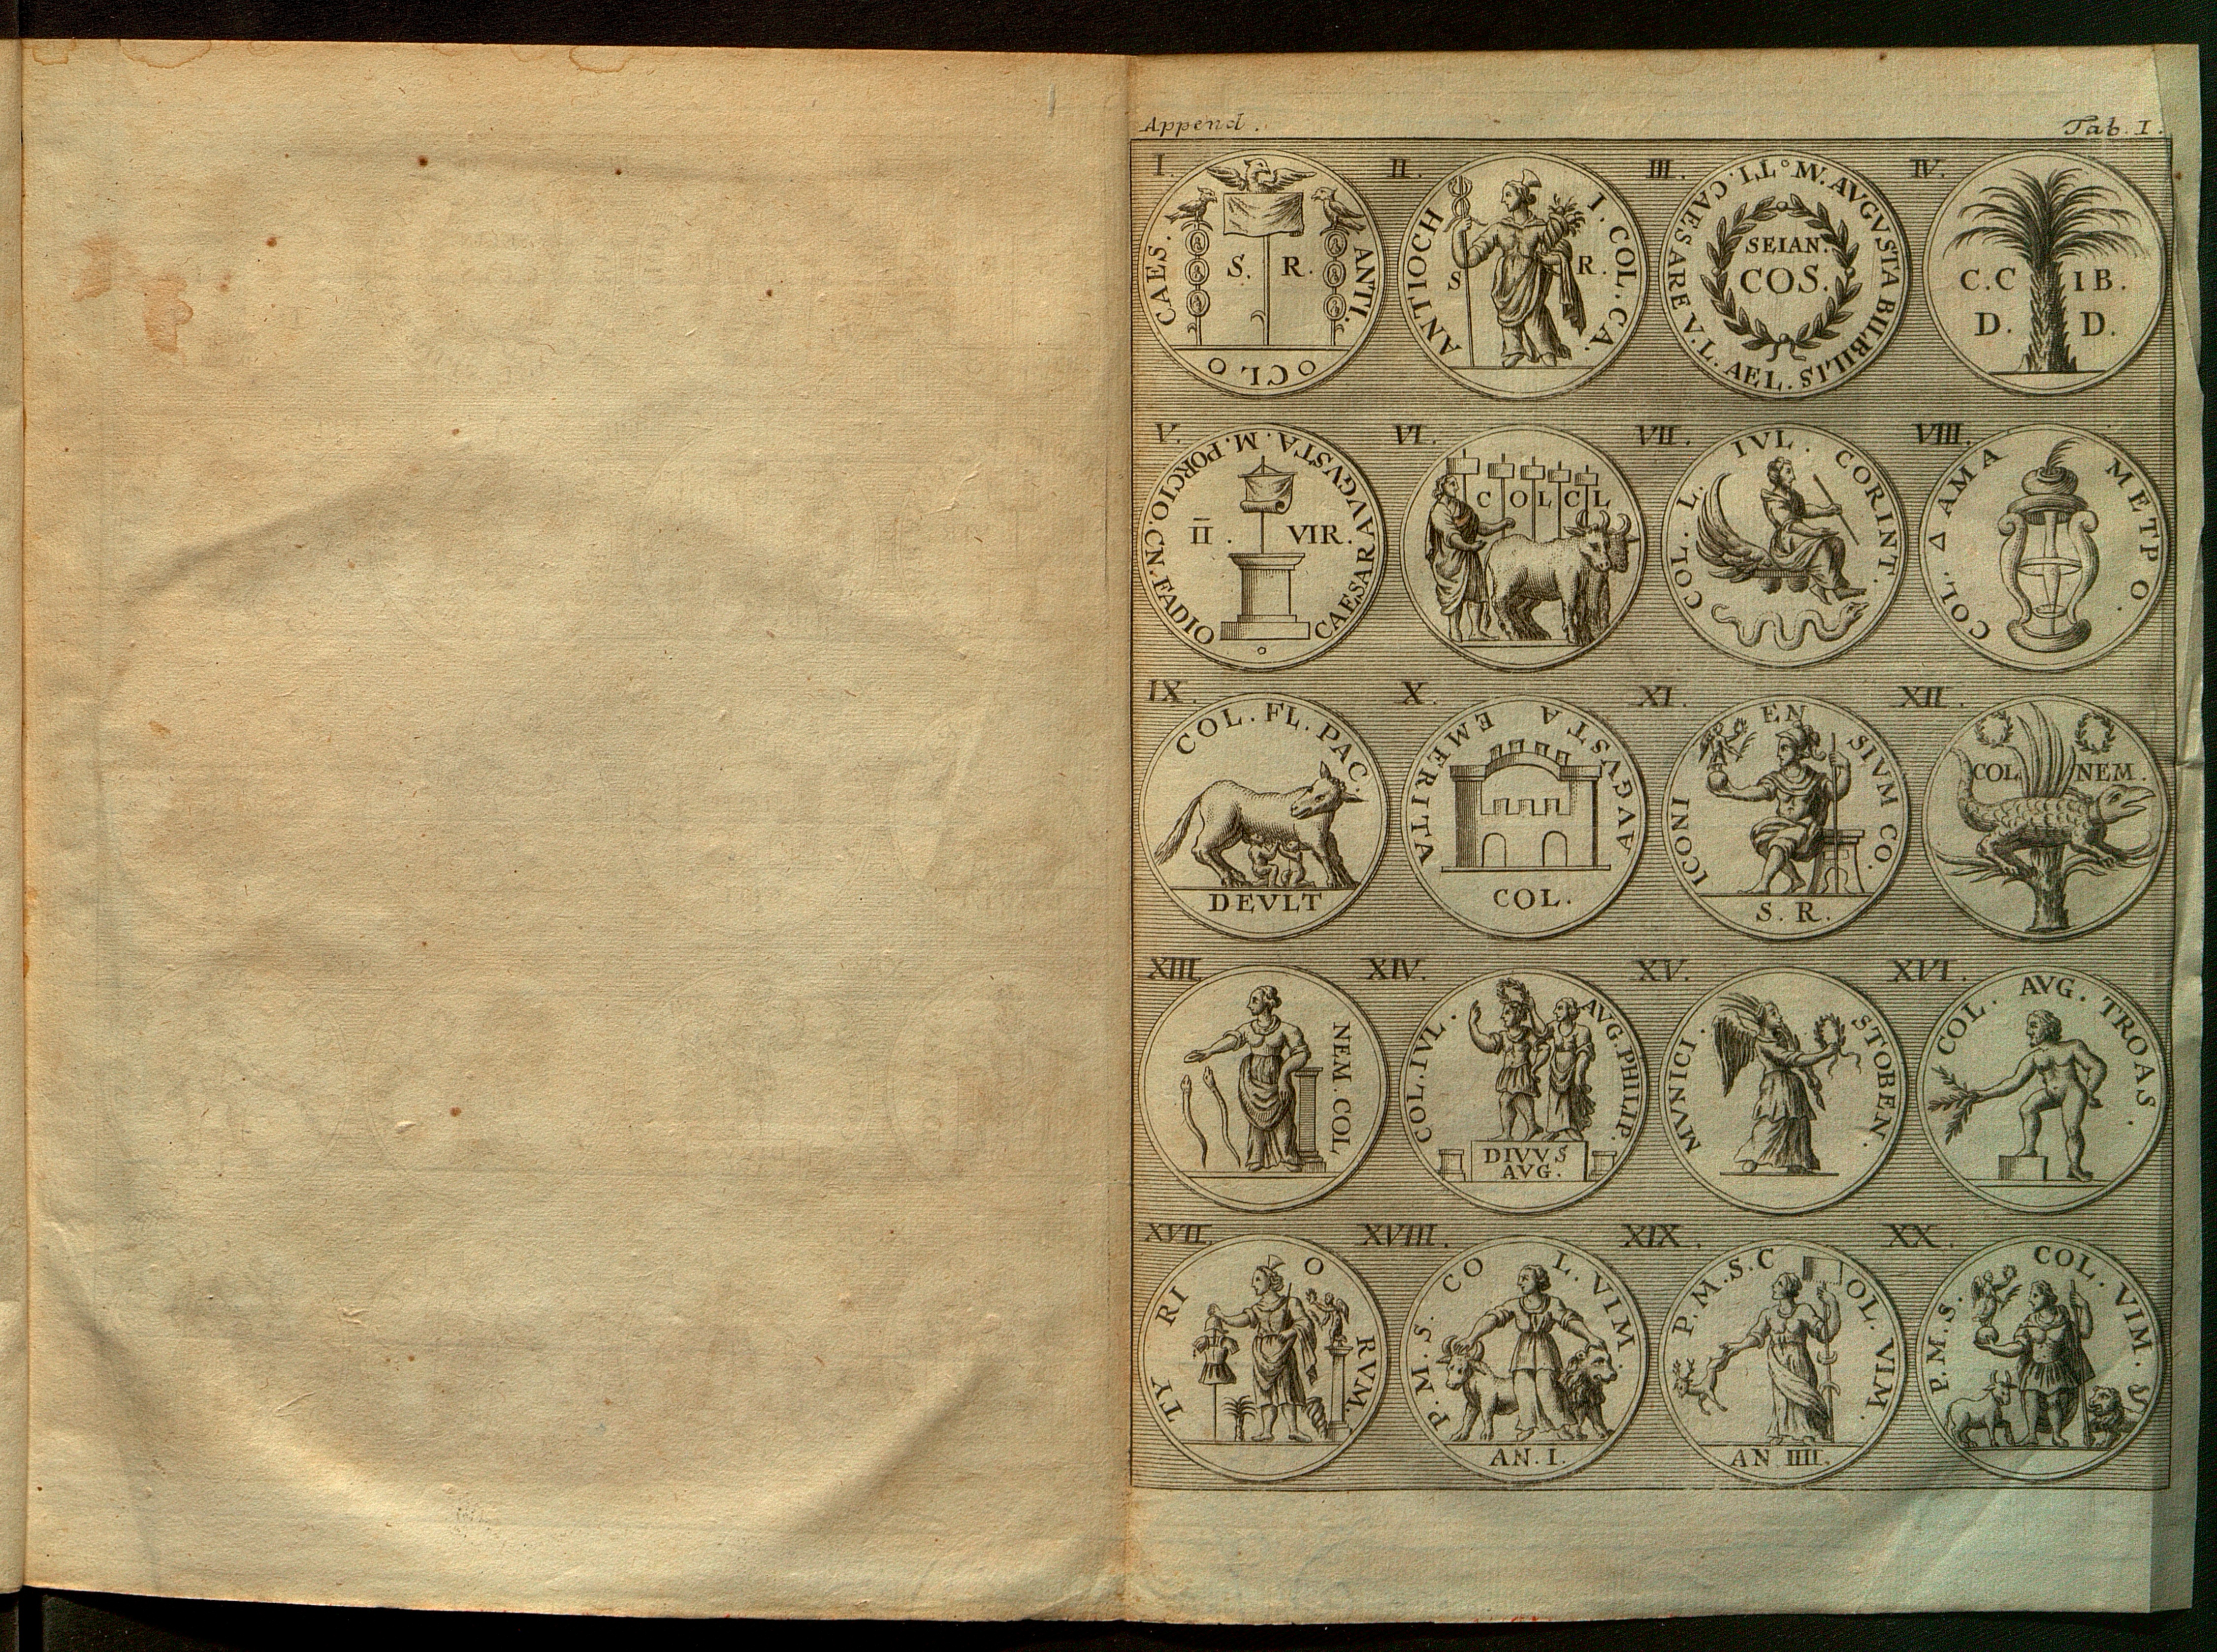 Append. Tab. I.
I. II. III. IV.
CAES. ANTI. OCLO
S. R.
ANTIOCH I. COL. CA.
S R.
M. AVGVSTA BILBILIS TI. CAESARE V. L. AEL.
SEIAN.
COS.
C.C IB.
D. D.
V. VI. VII. VIII.
CAESARAVGVSTA. M. PORCIO. CN. FADIO
II . VIR.
COLCL
COL. L. IVL. CORINT.
COL. Δ AMA METPO.
IX. X. XI. XII.
COL. FL. PAC.
DEVLT
AVGVSTA EMERITA
COL.
ICONI EN SIVM CO.
S. R.
COL NEM.
XIII. XIV. XV. XVI.
NEM. COL
COL. IVL. AVG. PHILIP.
DIVVS
AVG.
MVNICI. STOBEN.
COL. AVG. TROAS.
XVII. XVIII. XIX. XX.
TY RI O RVM.
P. M. S. CO L. VIM.
AN. I.
P. M. S. C OL. VIM.
AN IIII.
P. M. S. COL. VIM.